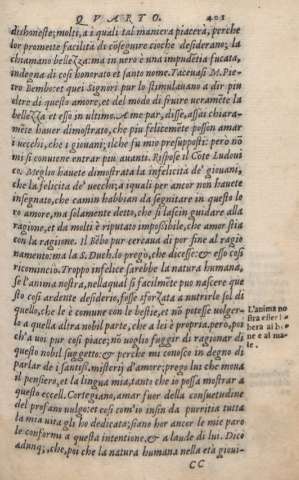 QVARTO. 401
dishoneste; molti, a i quali tal maniera piacerà, perche
lor promette facilità di cōseguire ciochè desiderano; la
chiamano bellezza: ma in uero è una impudētia fucata,
indegna di cosi honorato et santo nome. Taceuasi M. Pie-
tro Bembo: et quei Signori pur lo stimulauano a dir piu
oltre di questo amore, et del modo di fruire ueramēte la
bellezza et esso in ultimo. A me par, disse, assai chiara-
mēte hauer dimostrato, che piu felicemēte posson amar
i uecchi, che i giouani; ilche fu mio presupposti: perо̀ nō
mi si conuiene entrar piu auanti. Rispose il Cōte Ludoui
co. Meglio hauete dimostrata la infelicità de' giouani,
che la felicità de' uecchi; a i quali per ancor non hauete
insegnato, che camin habbian da seguitare in questo lo
ro amore, ma solamente detto, che si lascin guidare alla
ragione, et da molti è riputato impossibile, che amor stia
con la ragione. Il Bēbo pur cercaua di por fine al ragio
namento: ma la S. Duch. lo pregò, che dicesse: & esso cosi
ricominciò. Troppo infelice sarebbe la natura humana,
se l'anima nostra, nella qual si facilmēte puo nascere que
sto cosi ardente desiderio, fosse sforzata a nutrirlo sol di
quello, che le è comune con le bestie, et nō potesse uolger-
lo a quella altra nobil parte, che a lei è propria, perо̀, poi
ch'a uoi pur cosi piace; nō uoglio fuggir di ragionar di
questo nobil suggetto. & perche mi conosco in degno di
parlar de i santiss. misterij d'amore; prego lui che moua
il pensiero, et la lingua mia, tanto che io possa mostrar a
questo eccell. Cortegiano, amar fuor della consuetudine
del profano uulgo: et cosi com'io insin da pueritia tutta
la mia uita gli ho dedicata; siano hor ancor le mie paro
le conformi a questa intentione, & a laude di lui. Dico
adunq;, che, poi che la natura humana nella età gioui-
CC
L'anima no
stra esser li
bera al be
ne e al ma-
le.